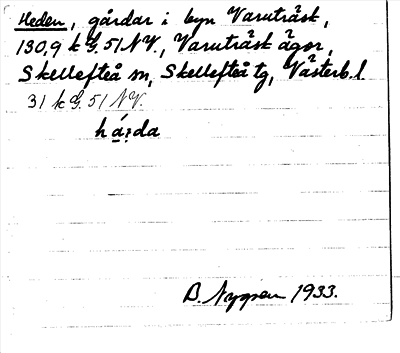 Heden, gårdar i byn Varuträsk,
130,9 k G. 51 NV., Varuträsk ägor,
Skellefteå sn, Skellefteå tg, Västerb. l.
31 k G. 51 NV.
1933.